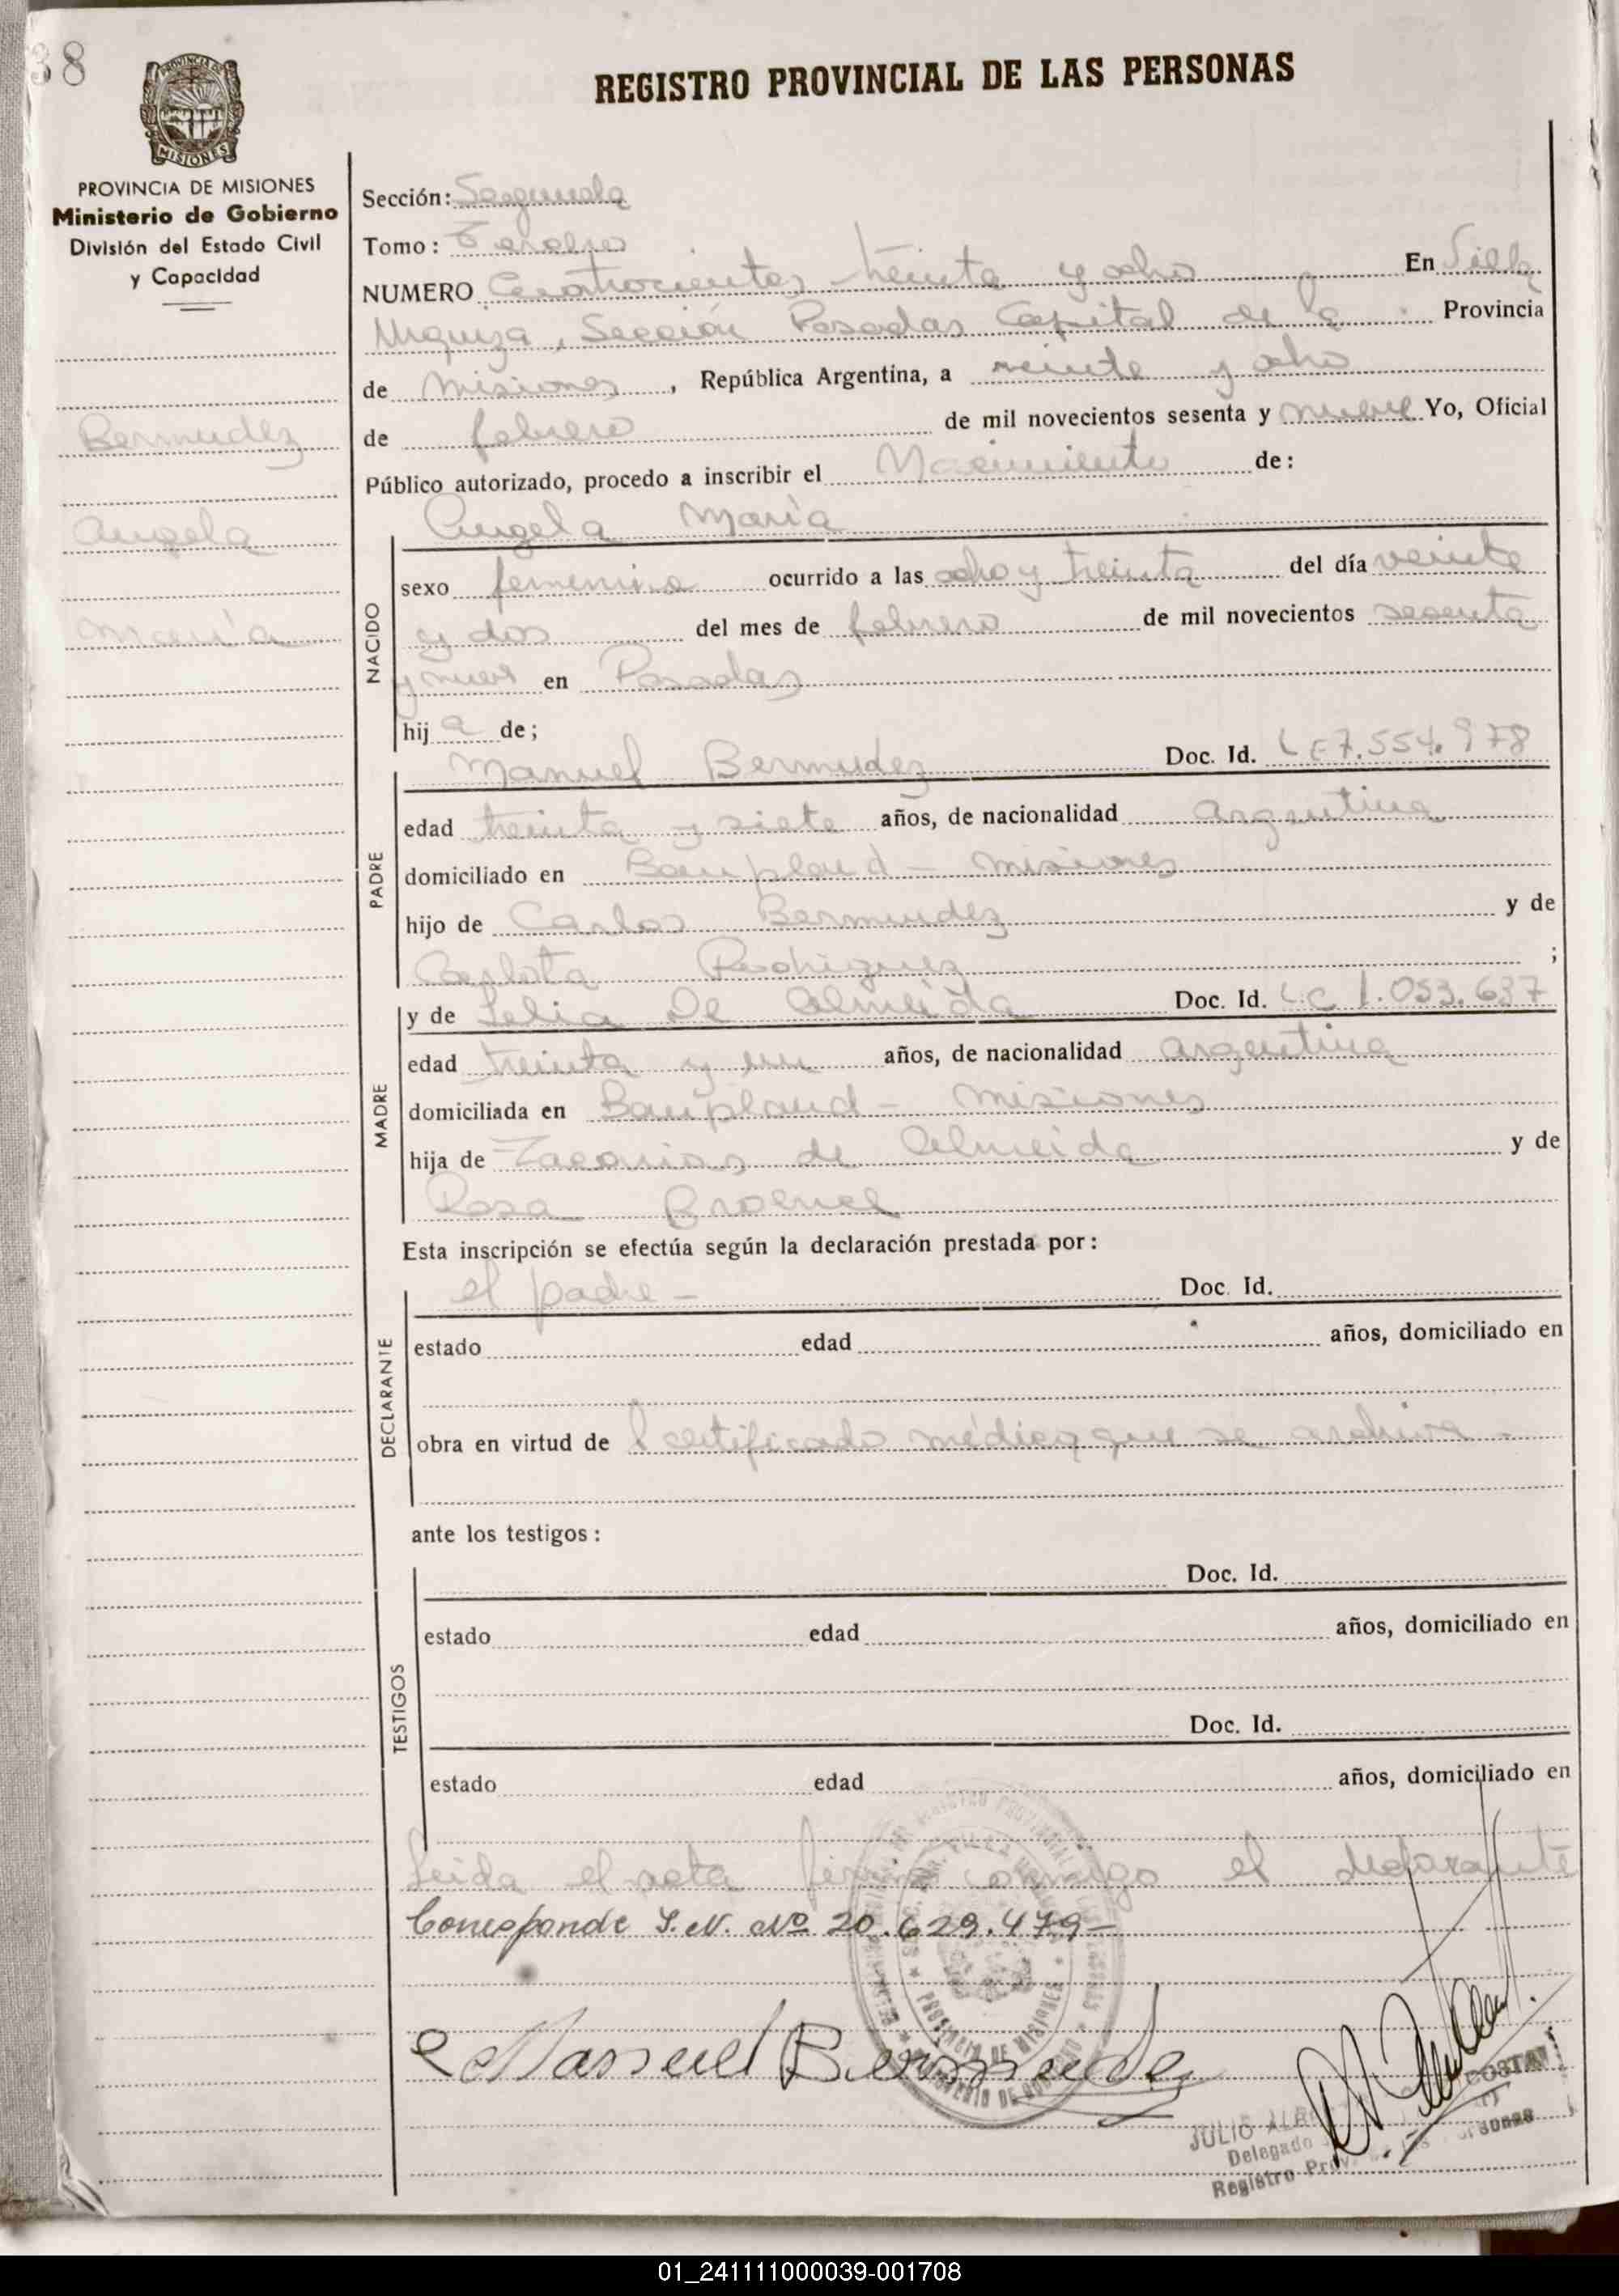 38
PROVINCIA DE
MISIONES
REGISTRO PROVINCIAL DE LAS PERSONAS
PROVINCIA DE MISIONES
Ministerio de Gobierno
División del Estado Civil
y Capacidad
Bermudez
Angela
María
Sección: Segunda
Tomo: Tercero
NUMERO Cuatrocientos treinta y ocho En Villa
Urquiza, Sección Posadas Capital de la Provincia
de Misiones, República Argentina, a veinte y ocho
de febrero de mil novecientos sesenta y nueve Yo, Oficial
Público autorizado, procedo a inscribir el Nacimiento de:
Angela María
NACIDO
sexo femenino ocurrido a las ocho y treinta del día veinte
y dos del mes de febrero de mil novecientos sesenta
y nueve en Posadas
hij a de;
Manuel Bermudez Doc. Id. LE 7.554.978
PADRE
edad treinta y siete años, de nacionalidad argentina
domiciliado en Bompland - Misiones
hijo de Carlos Bermudez y de
Carlota Rodriguez ;
y de Lelia De Almeida Doc. Id. L.C 1.053.637
MADRE
edad treinta y un años, de nacionalidad argentina
domiciliada en Bompland - Misiones
hija de Zacarias de Almeida y de
Rosa
Esta inscripción se efectúa según la declaración prestada por:
el padre - Doc. Id.
DECLARANTE
estado edad años, domiciliado en
obra en virtud de l certificado médico que se archiva -
ante los testigos:
TESTIGOS
Doc. Id.
estado edad años, domiciliado en
Doc. Id.
estado edad años, domiciliado en
Leida el acta firma conmigo el declarante
Corresponde I.N. Nº 20.629.479-
Manuel Bermudez
PROVINCIA DE MISIONES
MINISTERIO DE GOBIERNO
JULIO
Delegado
Registro
01_241111000039-001708